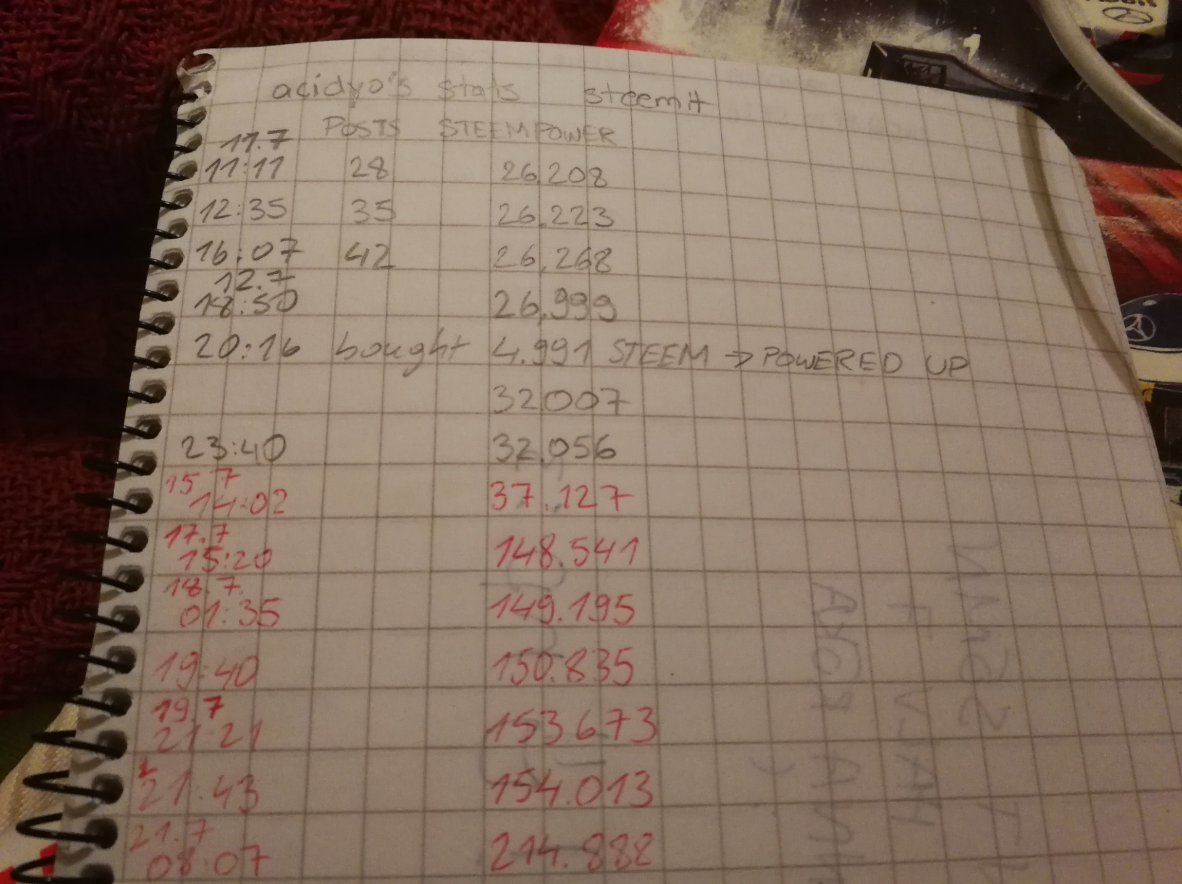 acidyo's stats steemit
POSTS STEEMPOWER
11.7
11:11 28 26,208
12:35 35 26,223
16:07 42 26,268
12.7
18:50 26,999
20:16 bought 4.991 STEEM → POWERED UP
32007
23:40 32,056
15.7
14:02 37.127
17.7
15:20 148.541
18.7.
01:35 149.195
19:40 150.835
19.7
21:21 153.673
21:43 154.013
21.7
08:07 214.882